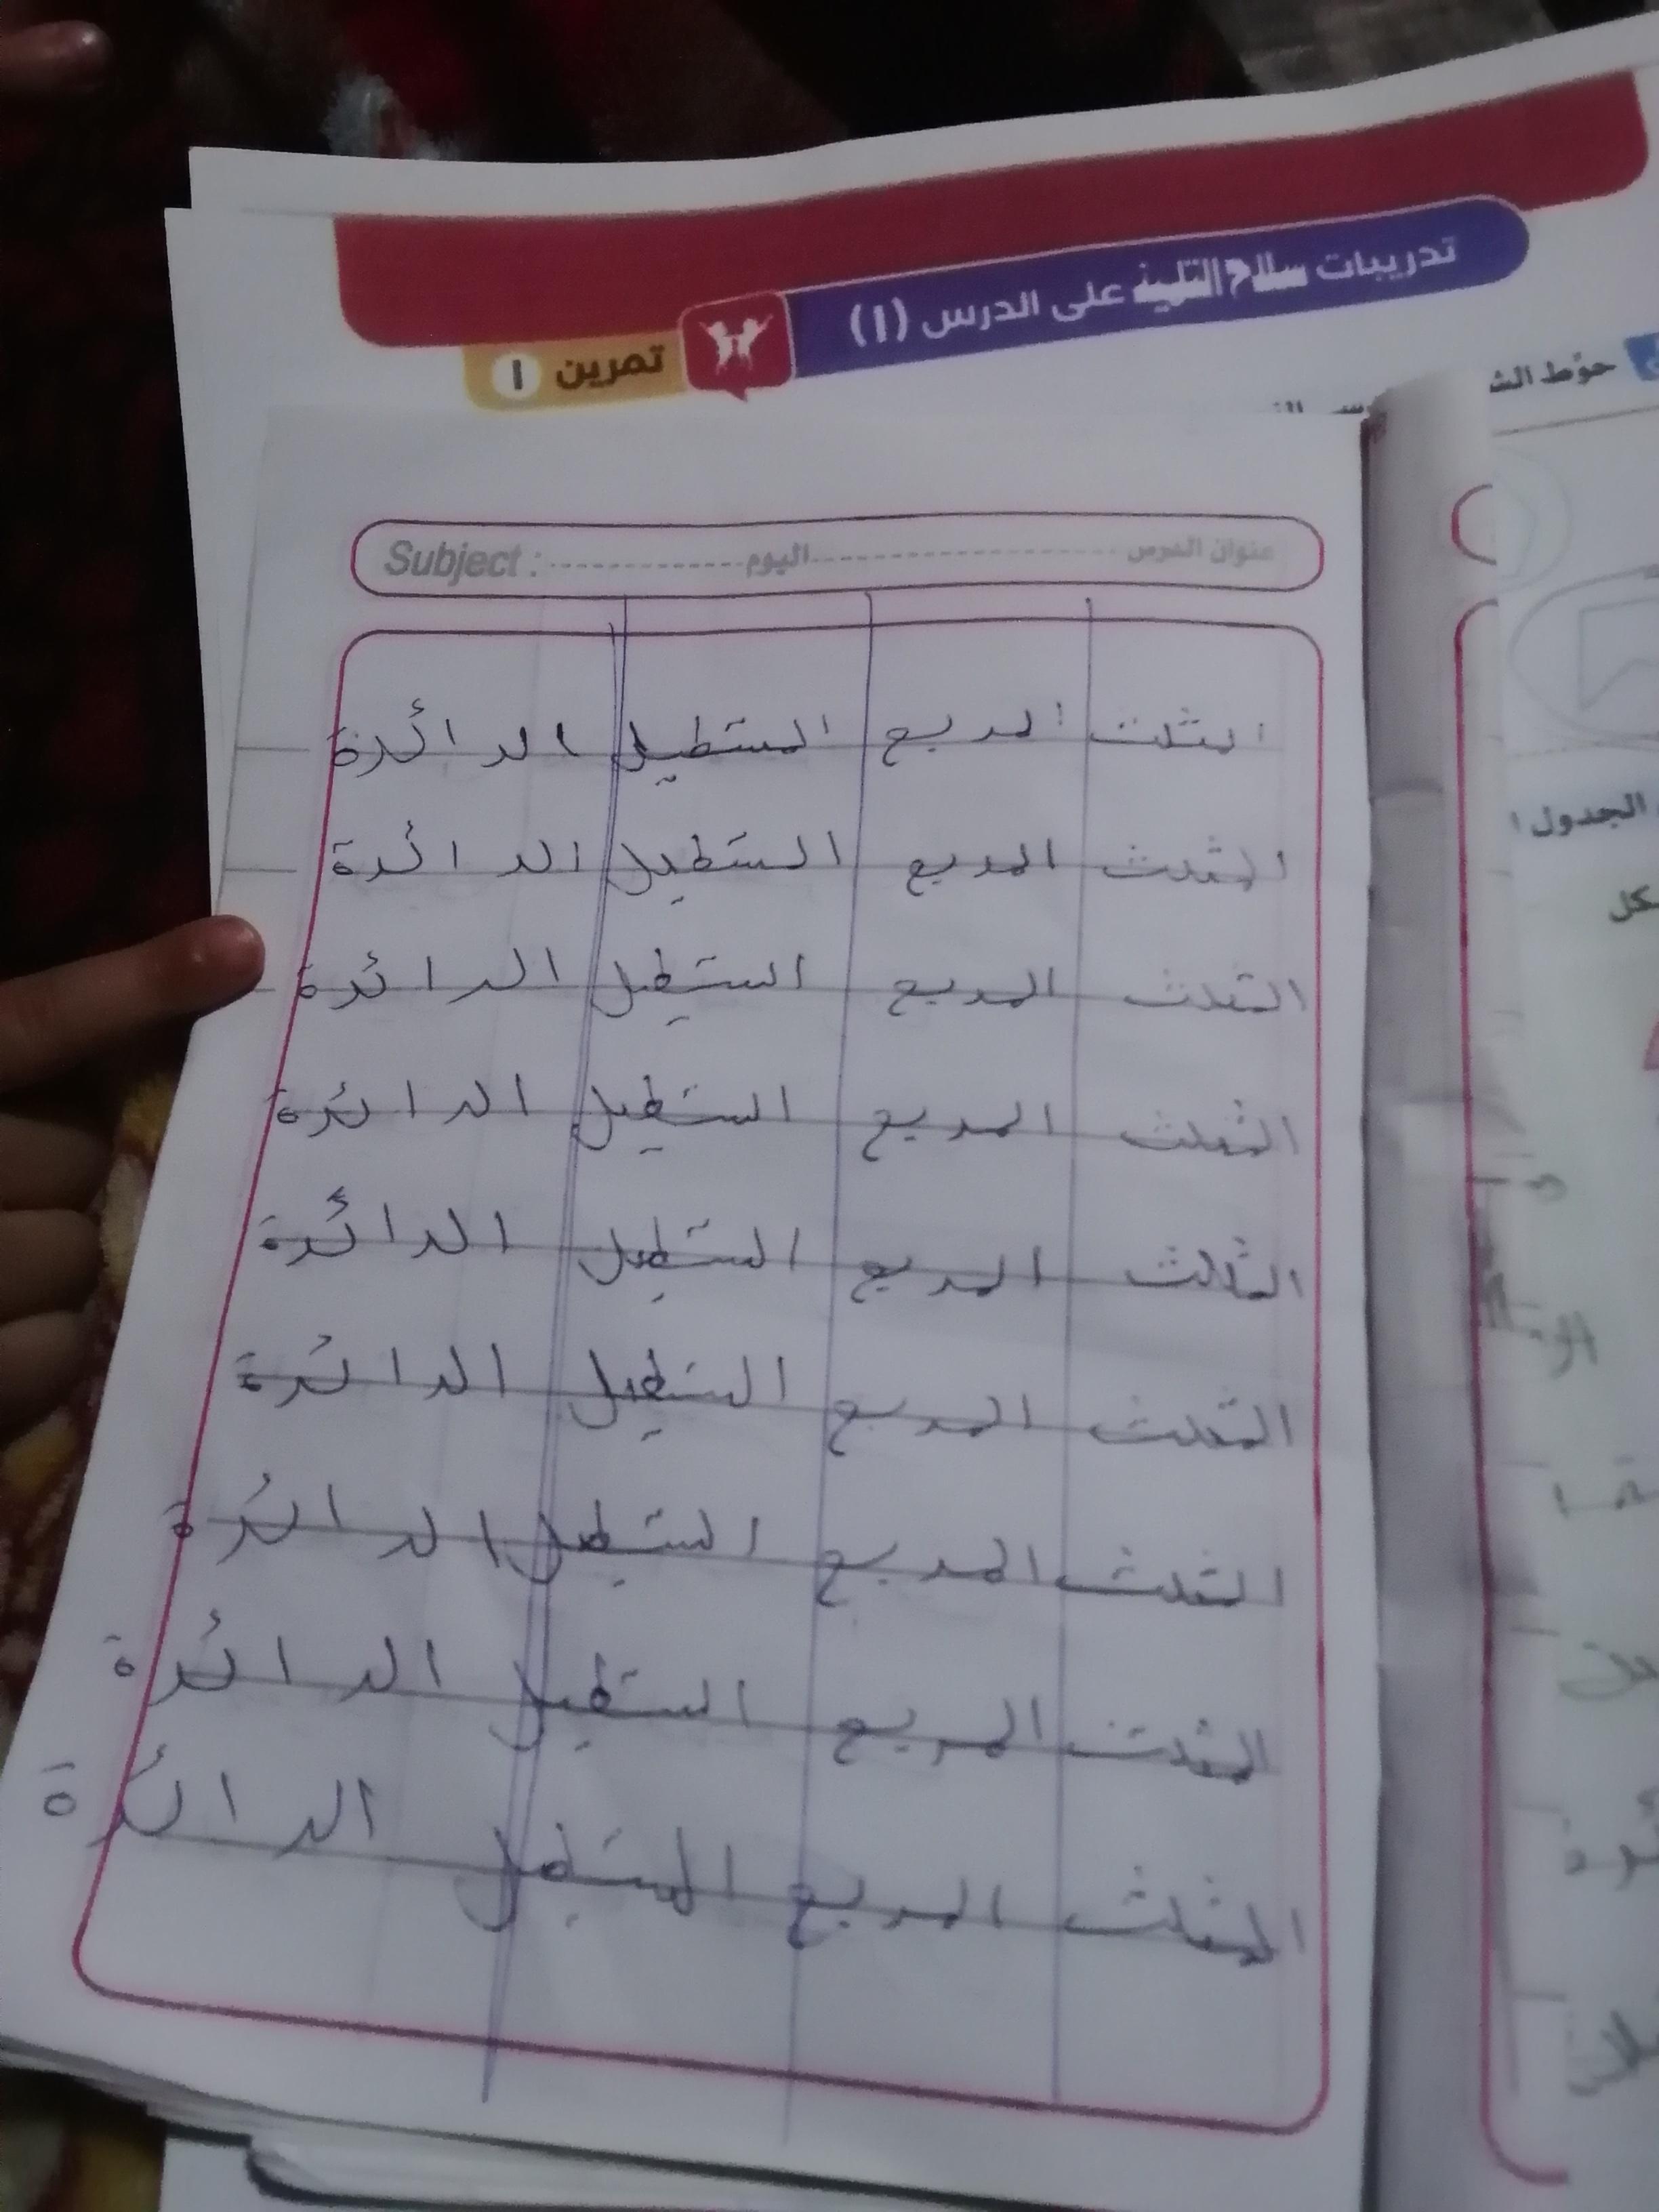 تدريبات سلاح التلميذ على الدرس (١)
تمرين ١
حوّط الش
عنوان الدرس اليوم Subject :
المثلث المربع المستطيل الدائرة
المثلث المربع المستطيل الدائرة
المثلث المربع المستطيل الدائرة
المثلث المربع المستطيل الدائرة
المثلث المربع المستطيل الدائرة
المثلث المربع المستطيل الدائرة
المثلث المربع المستطيل الدائرة
المثلث المربع المستطيل الدائرة
المثلث المربع المستطيل الدائرة
الجدول
كل